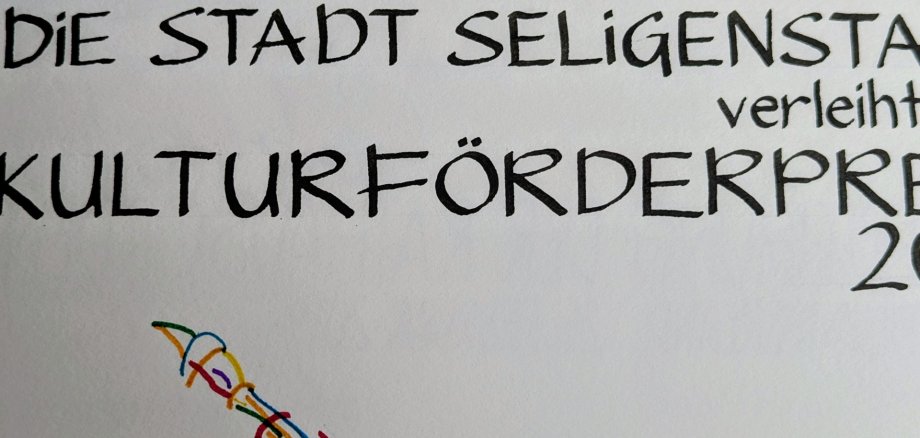 DiE STADT SELiGENSTA
verleiht
KULTURFÖRDERPRE
20